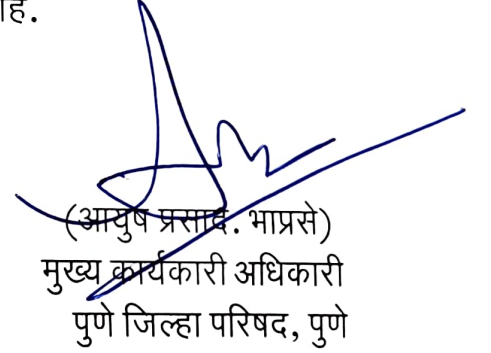 आहे.
(आयुष प्रसाद. भाप्रसे)
मुख्य कार्यकारी अधिकारी
पुणे जिल्हा परिषद, पुणे